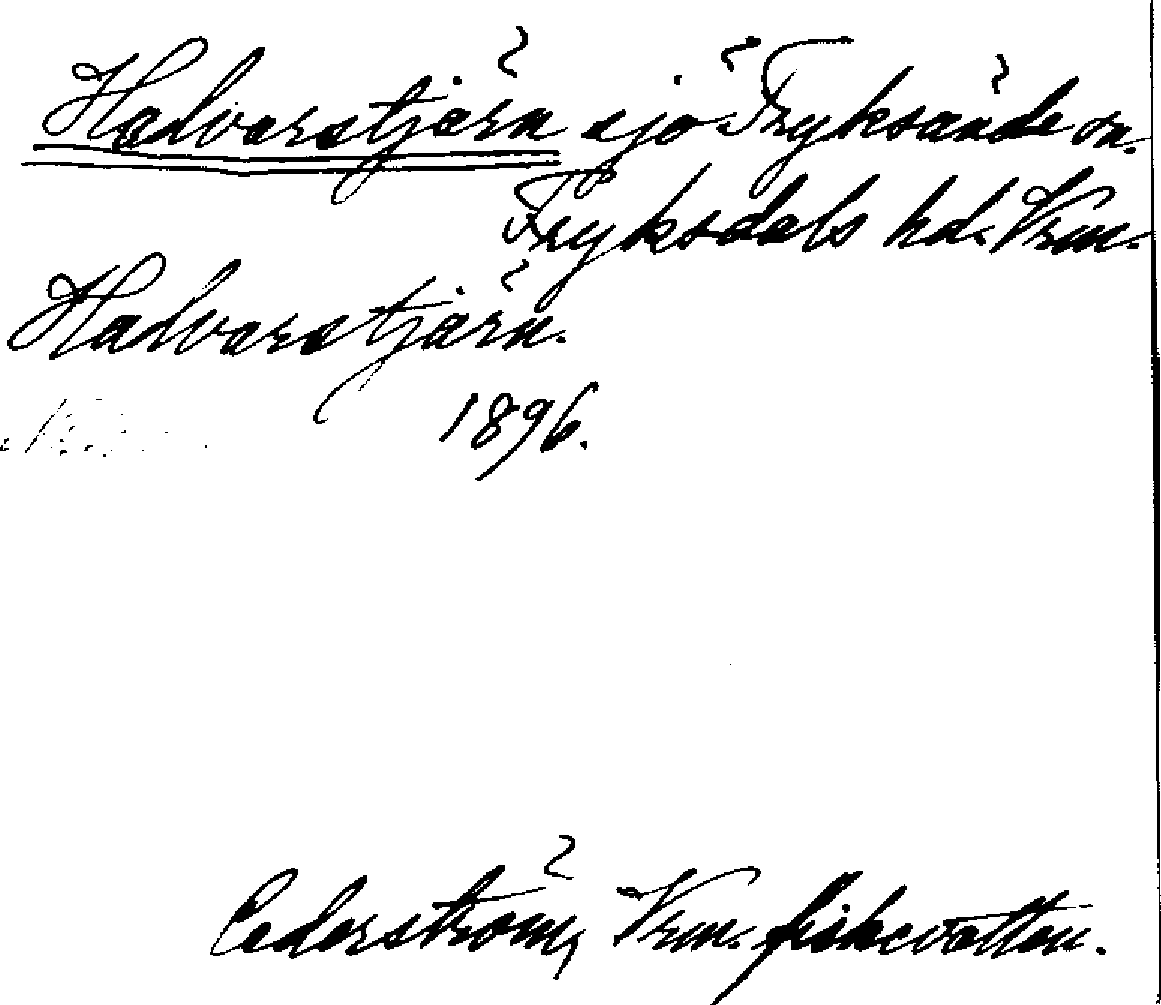 Halvarstjärn sjö Fryksände sn.
Fryksdals hd. Vrm.
Halvarstjärn.
1896.
Cederström, Vrm. fiskevatten.